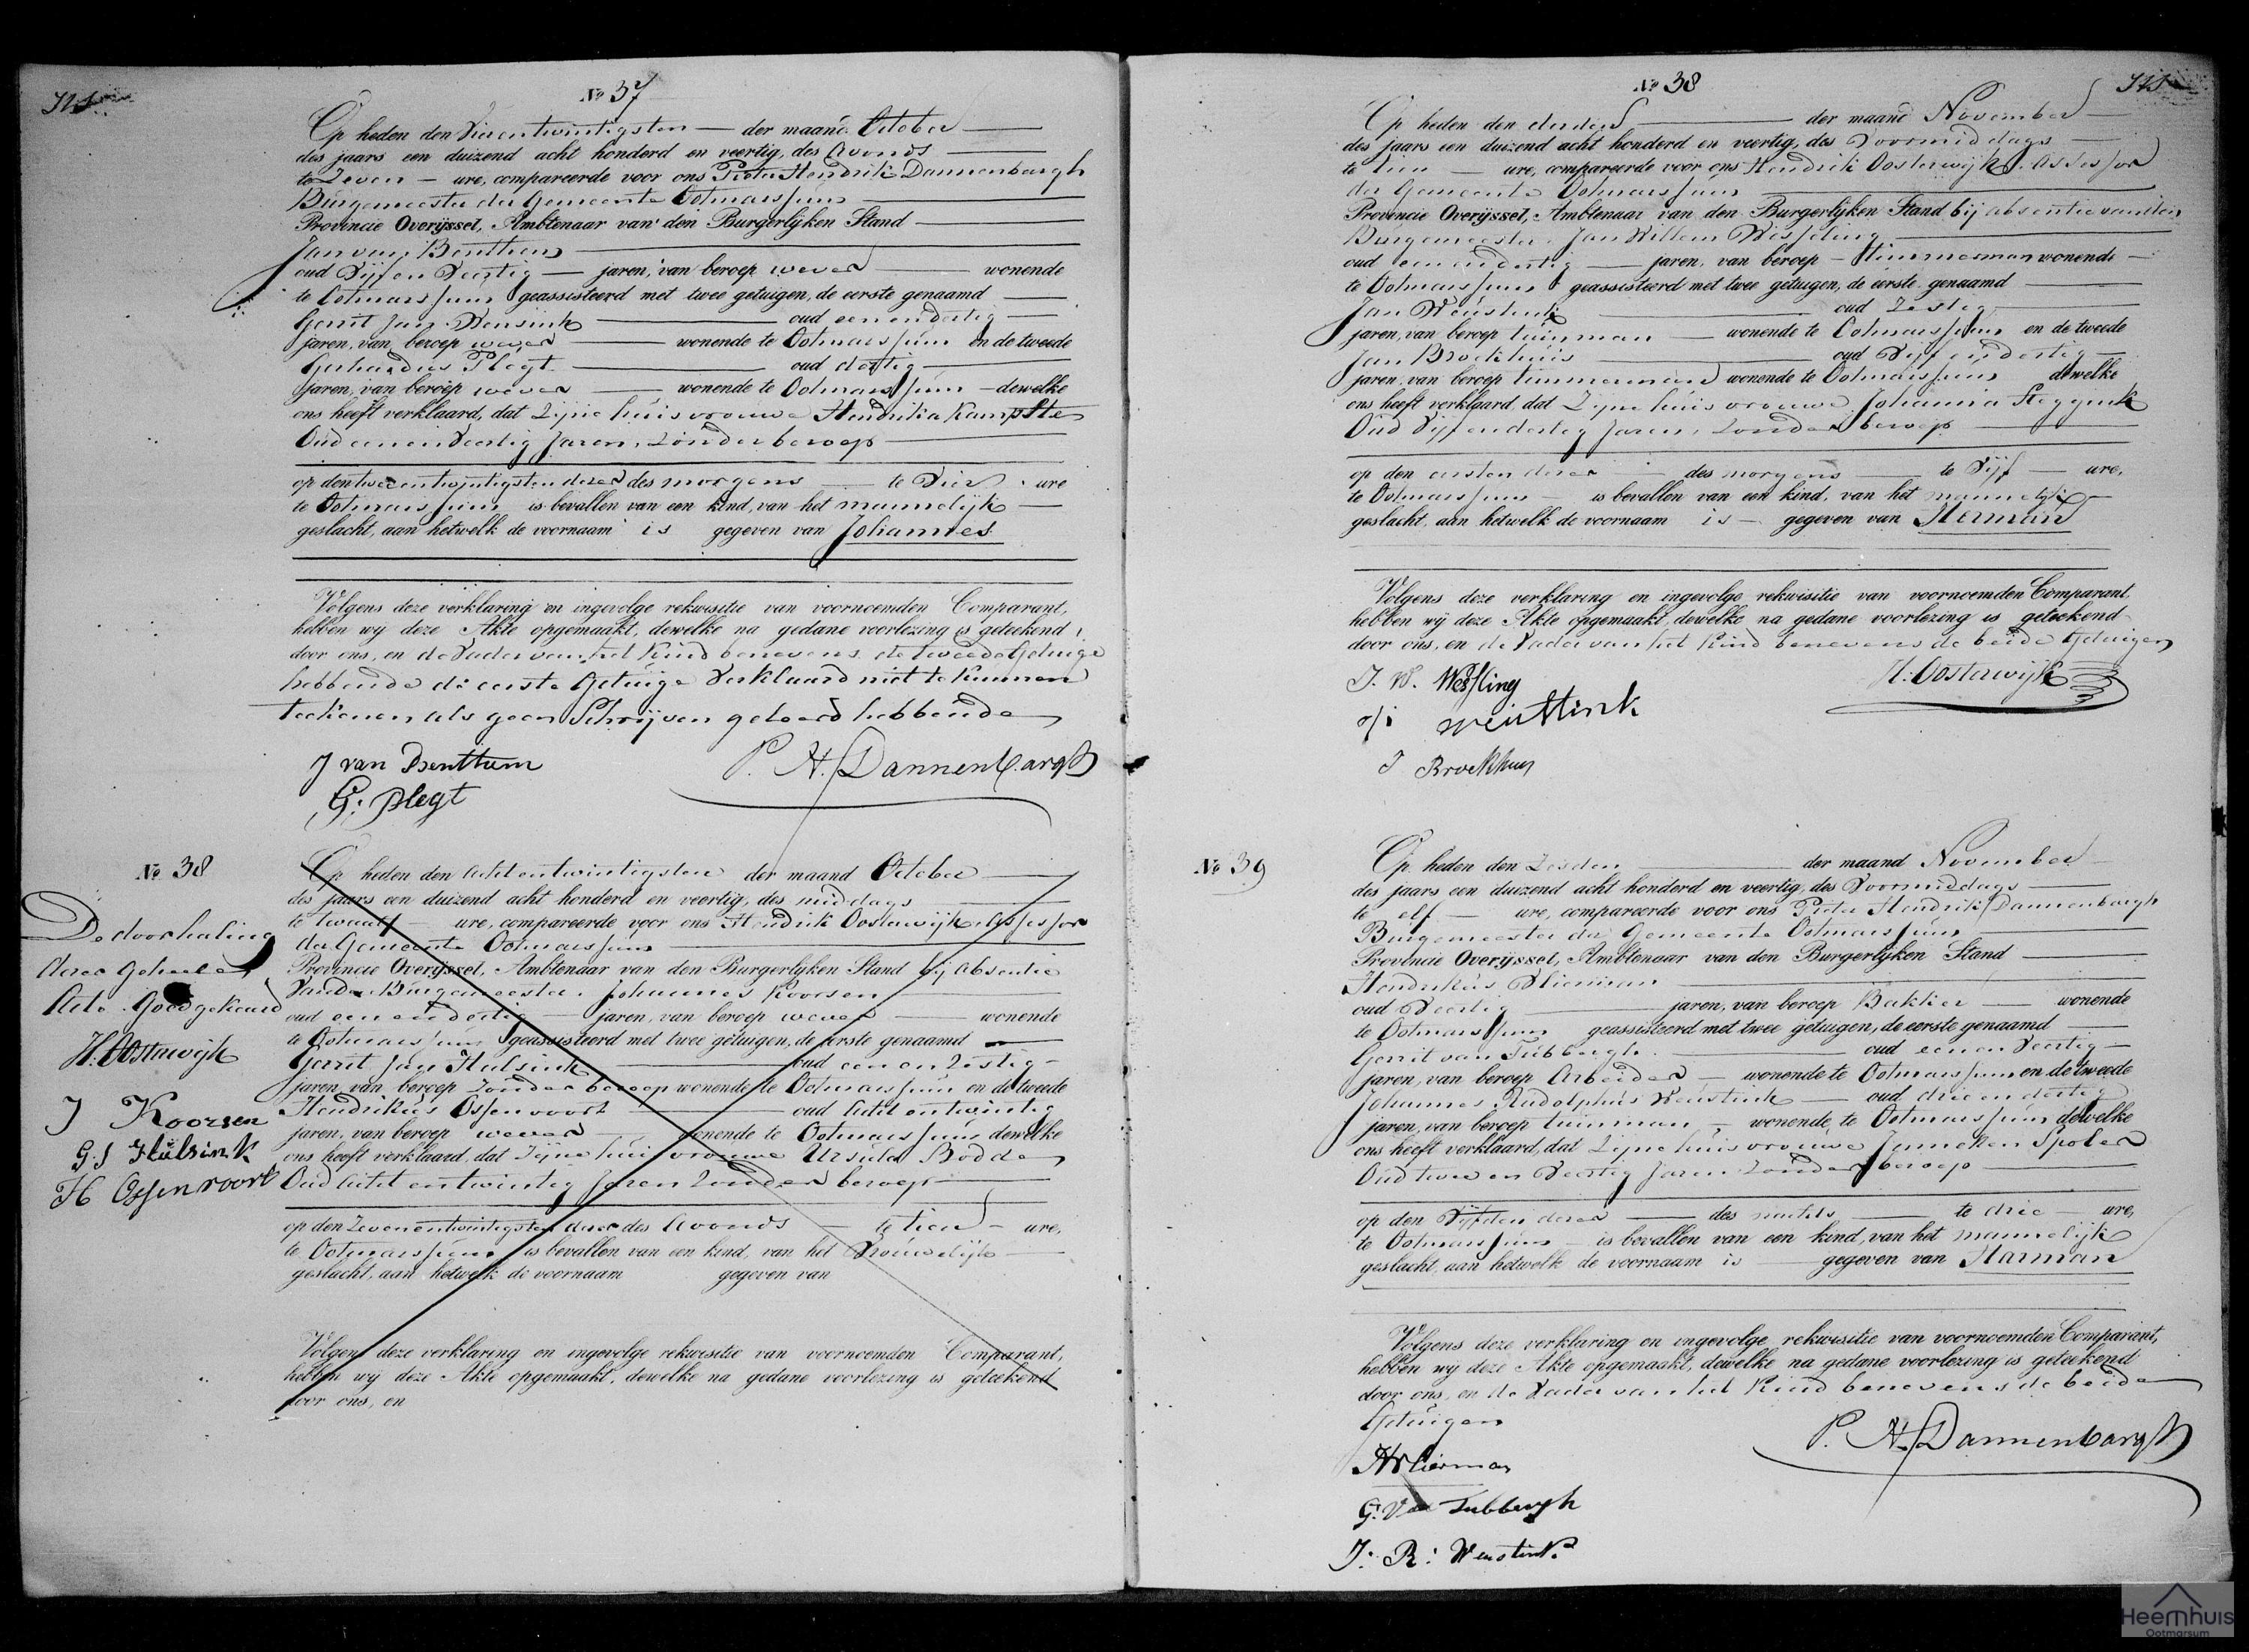 № 37
Op heden den Vierentwintigsten der maand October
des jaars een duizend acht honderd en veertig, des Avonds
te Zeven ure, compareerde voor ons Pieter Hendrik Dannenbargh
Burgemeester der Gemeente Ootmarssum
Provincie Overijssel, Ambtenaar van den Burgerlijken Stand
Jan van Benthem
oud Vijf en Veertig jaren, van beroep wever wonende
te Ootmarssum geassisteerd met twee getuigen, de eerste genaamd
Gerrit Jan Wensink oud eenendertig
jaren, van beroep wever wonende te Ootmarssum en de tweede
Gerhardus Plegt oud dertig
jaren, van beroep wever wonende te Ootmarssum dewelke
ons heeft verklaard, dat Zijne huisvrouwe Hendrika Kampste
Oud eenenveertig Jaren, Zonder beroep
op den tweeentwintigsten dezer des morgens te Vier ure
te Ootmarssum is bevallen van een kind, van het mannelijk
geslacht, aan hetwelk de voornaam is gegeven van Johannes
Volgens deze verklaring en ingevolge rekwisitie van voornoemden Comparant,
hebben wy deze Akte opgemaakt, dewelke na gedane voorlezing is geteekend
door ons, en de Vader van het Kind benevens de tweede Getuige
hebbende de eerste Getuige Verklaard niet te Kunnen
teekenen als geen Schrijven geleerd hebbende
J van Benthem
P. H. Dannenbargh
G: Plegt
№ 38
Op heden den achtentwintigsten der maand October
des jaars een duizend acht honderd en veertig, des middags
te twaalf ure, compareerde voor ons Hendrik Oosterwijk, Assessor
der Gemeente Ootmarssum
Provincie Overijssel, Ambtenaar van den Burgerlijken Stand bij Absentie
Van den Burgemeester. Johannes Koorsen
oud eenendertig jaren, van beroep wever wonende
te Ootmarssum geassisteerd met twee getuigen, de eerste genaamd
Gerrit Jan Hulsink oud eenenzestig
jaren, van beroep zonder beroep wonende te Ootmarssum en de tweede
Hendrikus Ossenvoort oud achtentwintig
jaren, van beroep wever wonende te Ootmarssum dewelke
ons heeft verklaard, dat Zijne huisvrouwe Ursula Bodde
Oud acht entwintig Jaren Zonder beroep
op den Zevenentwintigsten dezer des Avonds te tien ure,
te Ootmarssum is bevallen van een kind, van het Vrouwelijk
geslacht, aan hetwelk de voornaam gegeven van
Volgens deze verklaring en ingevolge rekwisitie van voornoemden Comparant,
hebben wy deze Akte opgemaakt, dewelke na gedane voorlezing is geteekend
door ons, en
De doorhaling
dezer Geheele
Acte Goedgekeurd
H. Oosterwijk
J Koorsen
G. J Hulsink
H Ossenvoort
№ 38
Op heden den derden der maand November
des jaars een duizend acht honderd en veertig, des Voormiddags
te tien ure, compareerde voor ons Hendrik Oosterwijk. Assessor
der Gemeente Ootmarssum
Provincie Overijssel, Ambtenaar van den Burgerlijken Stand bij absentie van den
Burgemeester. Jan Willem Wesseling
oud eenendertig jaren, van beroep Timmerman wonende
te Ootmarssum geassisteerd met twee getuigen, de eerste genaamd
Jan Weustink oud Zestig
jaren, van beroep tuinman wonende te Ootmarssum en de tweede
Jan Broekhuis oud Vijfendertig
jaren, van beroep timmerman wonende te Ootmarssum dewelke
ons heeft verklaard, dat Zijne huisvrouwe Johanna Steggink
Oud Vijfendertig Jaren, zonder beroep
op den eersten dezer des morgens te Vijf ure,
te Ootmarssum is bevallen van een kind, van het mannelijk
geslacht, aan hetwelk de voornaam is gegeven van Herman
Volgens deze verklaring en ingevolge rekwisitie van voornoemden Comparant
hebben wij deze Akte opgemaakt, dewelke na gedane voorlezing is geteekend
door ons, en de Vader van het Kind benevens de beide Getuigen
J. W. Wesseling
H: Oosterwijk
Weustink
J Broekhuis
№ 39
Op heden den Zesden der maand November
des jaars een duizend acht honderd en veertig, des Voormiddags
te elf ure, compareerde voor ons Pieter Hendrik Dannenbargh
Burgemeester der Gemeente Ootmarssum
Provincie Overijssel, Ambtenaar van den Burgerlijken Stand
Hendrikus Vlierman
oud Veertig jaren, van beroep Bakker wonende
te Ootmarssum geassisteerd met twee getuigen, de eerste genaamd
Gerrit van Tubbergh oud eenenVeertig
jaren, van beroep Arbeider wonende te Ootmarssum en de tweede
Johannes Rudolphus Weustink oud drieendertig
jaren, van beroep tuinman, wonende te Ootmarssum dewelke
ons heeft verklaard, dat Zijne huisvrouwe Janneken Spoler
Oud twee en Veertig Jaren Zonder beroep
op den Vijfden dezer des nachts te drie ure,
te Ootmarssum is bevallen van een kind, van het mannelijk
geslacht, aan hetwelk de voornaam is gegeven van Harman
Volgens deze verklaring en ingevolge rekwisitie van voornoemden Comparant,
hebben wij deze Akte opgemaakt, dewelke na gedane voorlezing is geteekend
door ons, en de Vader van het Kind benevens de beide
Getuigen
P. H. Dannenbargh
H Vlierman
G. Van Tubbergh
J: R: Weustink
Heemhuis
Ootmarsum